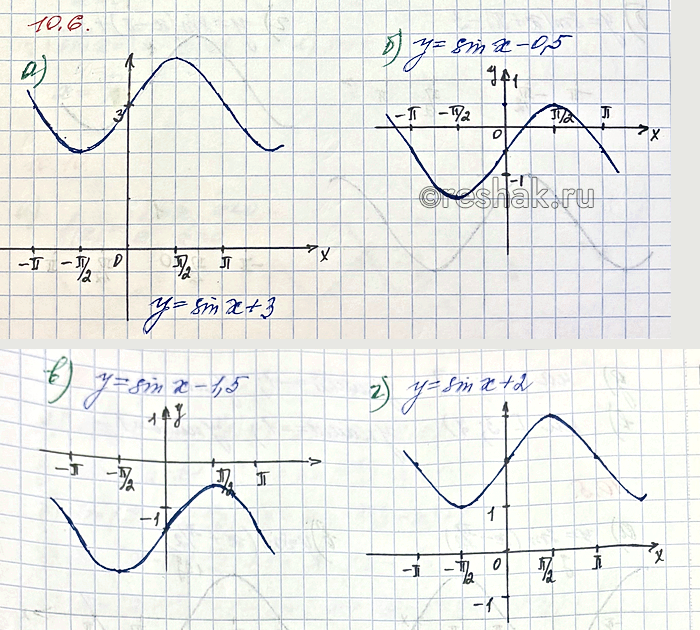 10.6.
а)
3
-π -π/2 0 π/2 π x
y = sin x + 3
б) y = sin x - 0,5
y 1
-π -π/2 0 π/2 π x
-1
©reshak.ru
в) y = sin x - 1,5
1 y
-π -π/2 π/2 π
-1
г) y = sin x + 2
1
-π -π/2 0 π/2 π x
-1